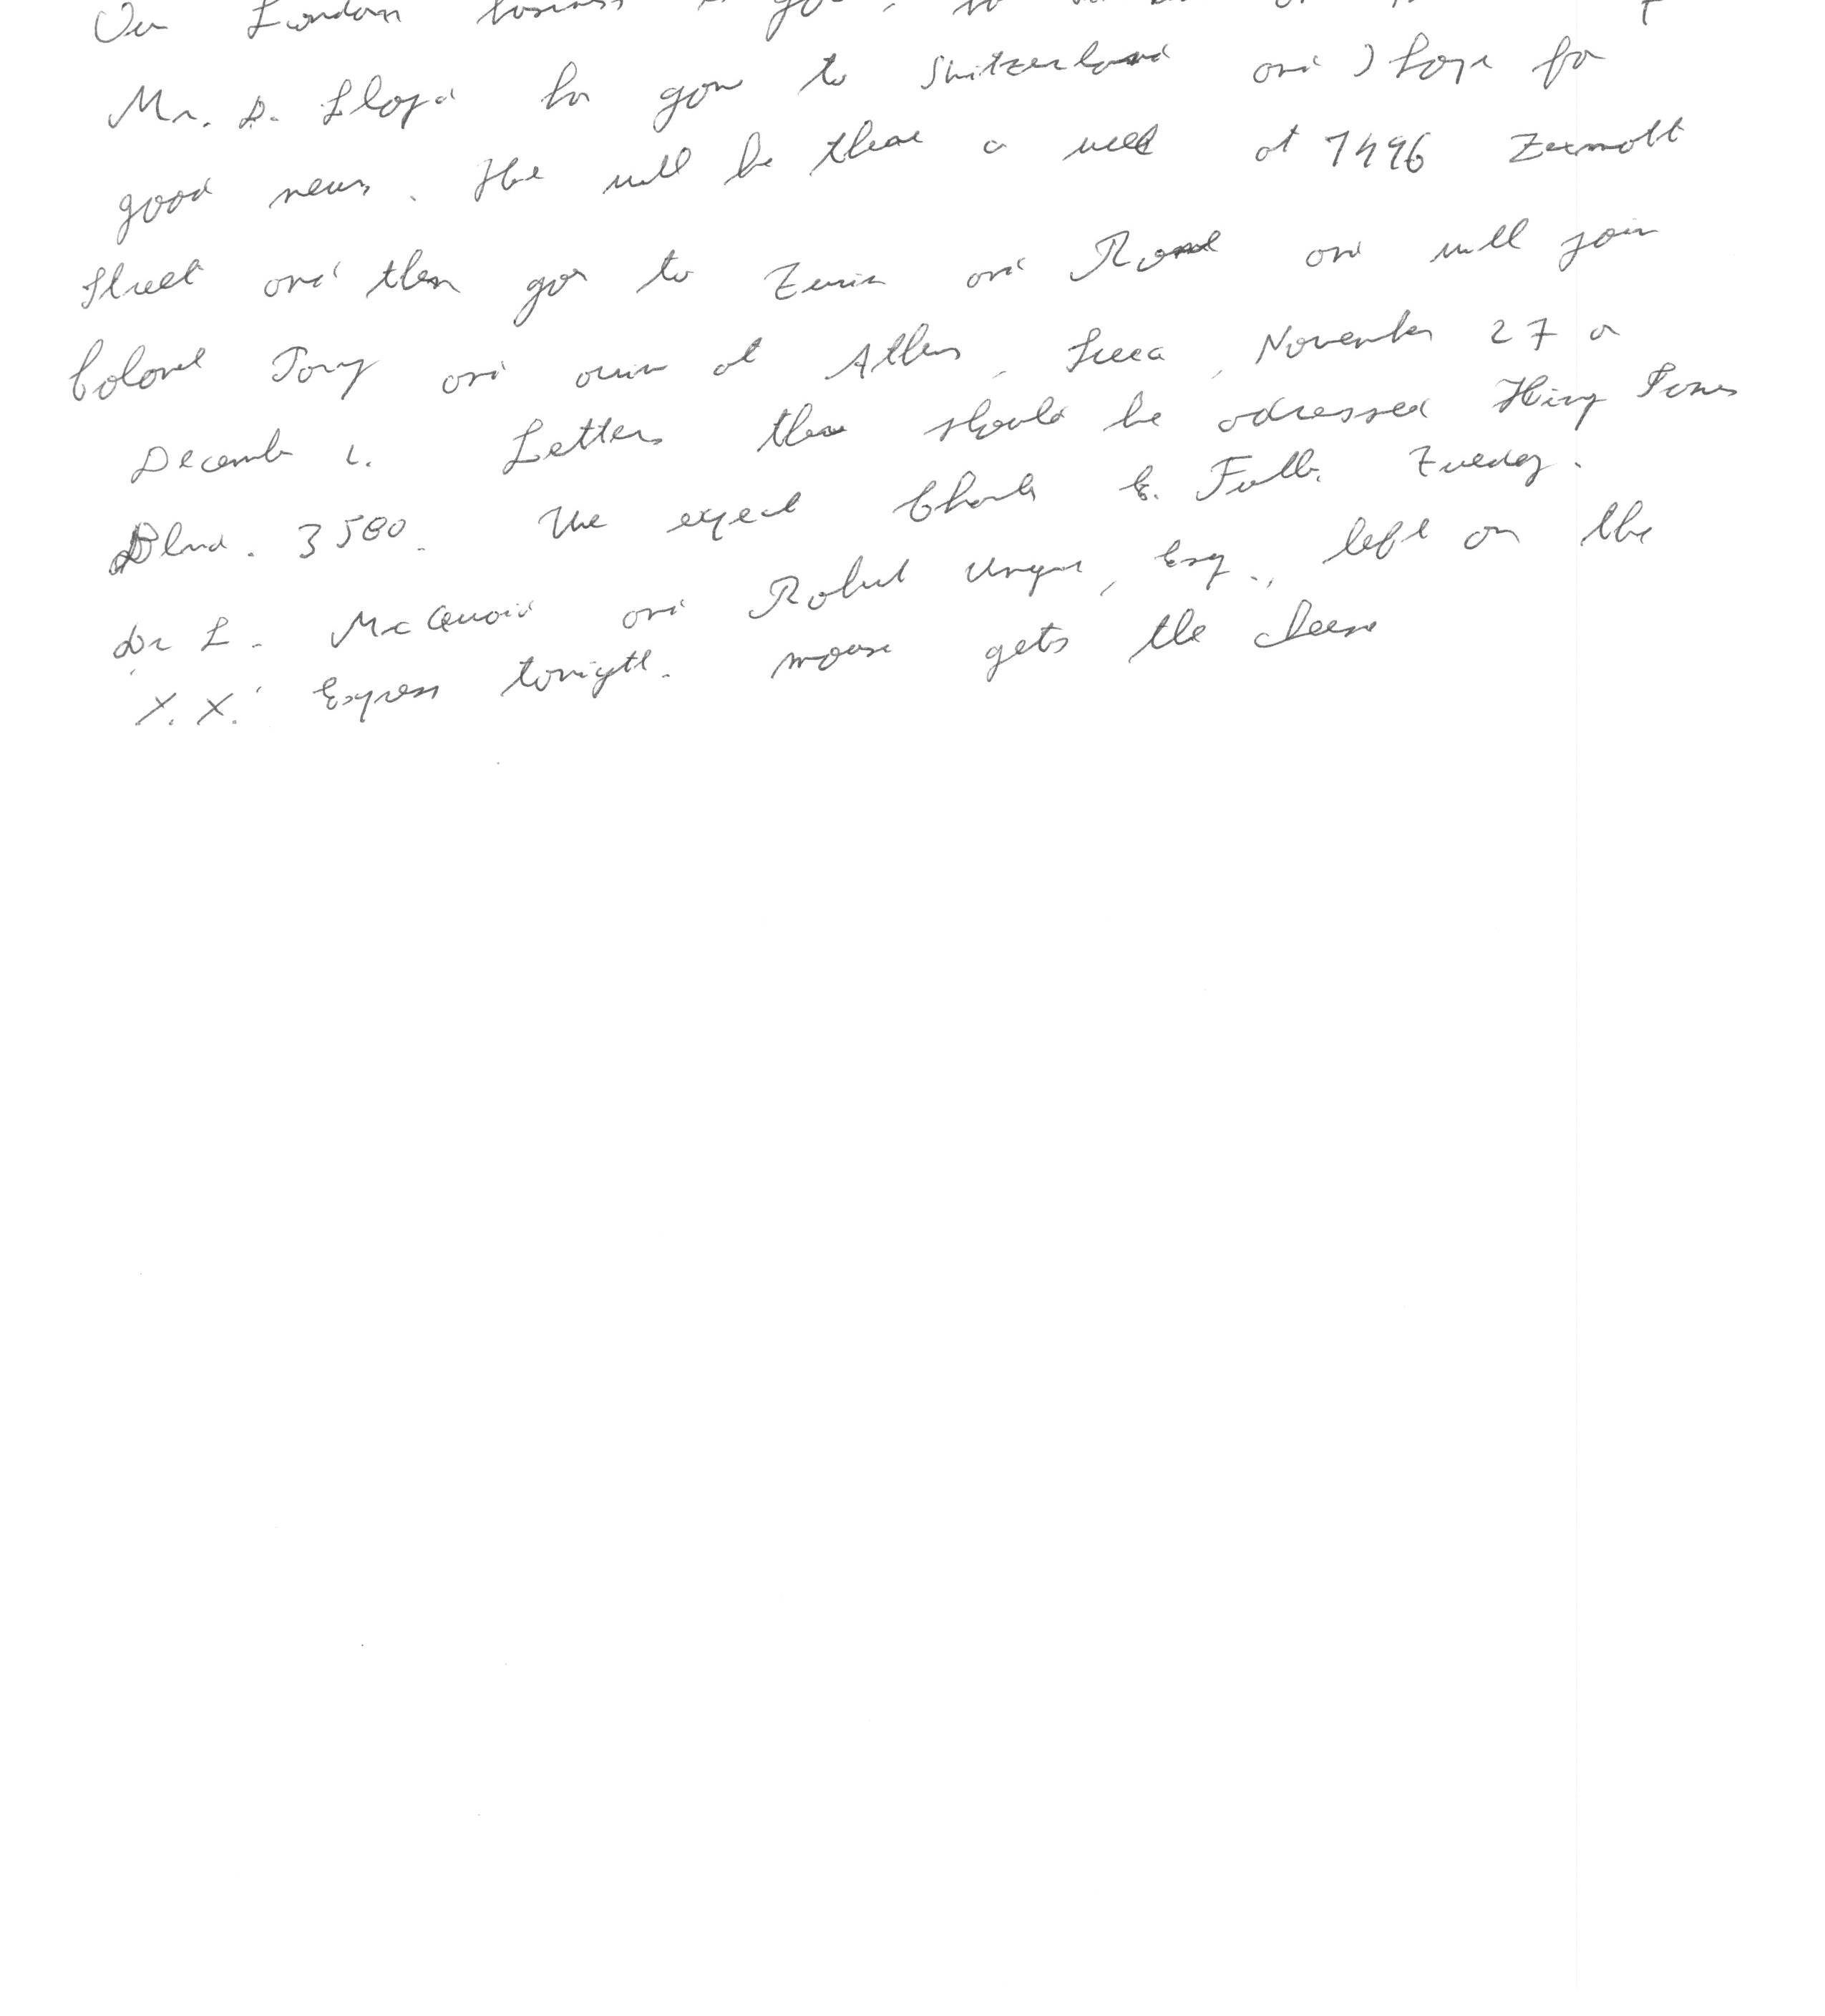 Our London business is good, so
Mr. D. Lloyd has gone to Switzerland and I hope for
good news. He will be there a week at 7496 Zermott
Street and then goes to Turin and Rome and will join
Colonel Parry and arrive at Athens, Greece, November 27 or
December 2. Letters there should be adressed King James
Blvd. 3580. We expect Charles E. Fuller Tuesday.
Dr L. McQuaid and Robert Unger, Esq., left on the
X.X.' Express tonight. mouse gets the cheese